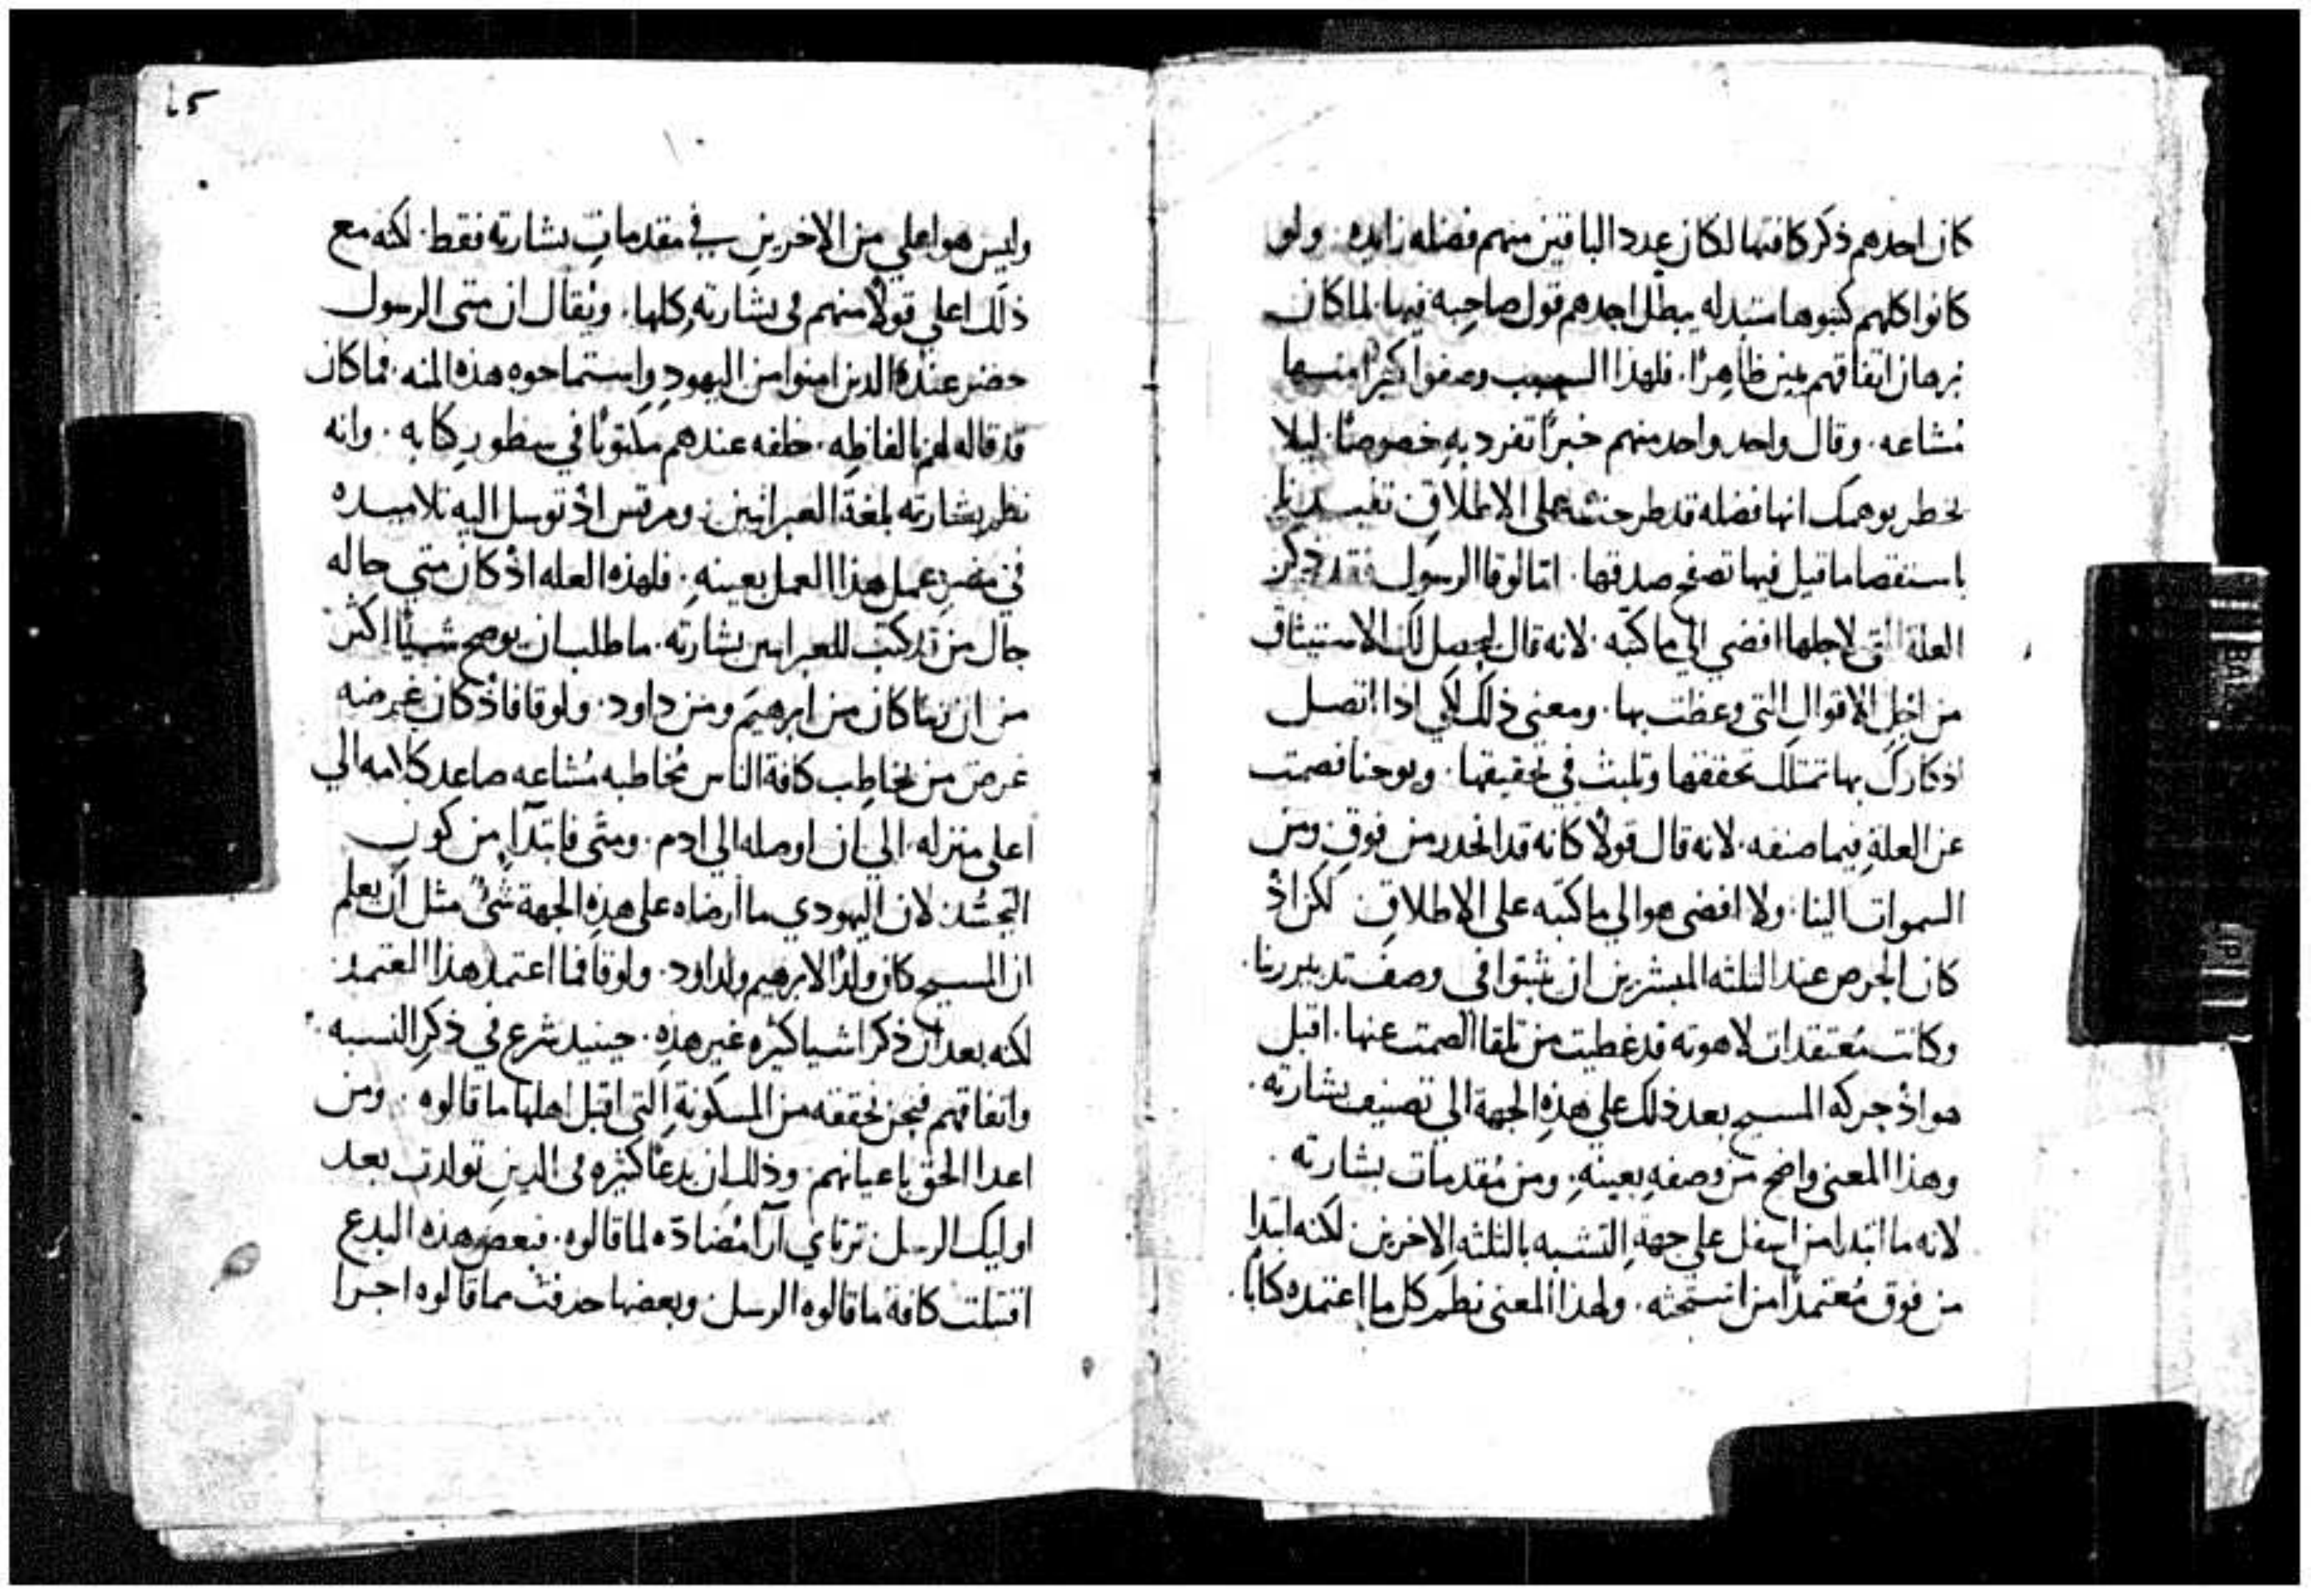 كان احدهم ذكر كافتها لكان عدد الباقين منهم فضله زايده. ولو
كانوا كلهم كتبوها مستبدله يبطل احدهم قول صاحبه فيها. لما كان
برهان اتفاقهم يبين ظاهرًا. فلهذا السبب وصفوا كثيرًا منها
مُشاعه. وقال واحد واحد منهم خبرًا تفرد بهِ خصوصًا. ليلا
يخطر بوهمك انها فضله قد طرحت على الاطلاقِ
باستقصا ما قيل فيها تصفح صدقها. امّا لوقا الرسول فقد ذكر
العلة التي لاجلها افضي الي ما كتبه. لانه قال ليحصل لك الاستيثاق
من اجلِ الاقوال التي وعظت بها. ومعني ذلك لكي اذا اتصل
اذكارك بها تمتلك تحققها وتلبث في تحقيقها. ويوحنا فصمت
عن العلةِ فيما صنفه. لانه قال قولًا كانه قد انحدر من فوقِ ومن
السموات الينا. ولا افضى هو الي ما كتبه على الاطلاقِ لكن اذْ
كان الحرص عند الثلثه المبشرين ان يثبتوا في وصف تدبير ربنا.
وكانت مُعتقدات لاهوته قد غطيت من تلقا الصمت عنها. اقبل
هو اذْ حركه المسيح بعد ذلك على هذهِ الجهة الي تصنيف بشارته.
وهذا المعنى واضح من وصفهِ بعينهِ. ومن مُقدمات بشارته.
لانه ما ابتدا من اسفل على جهةِ التشبه بالثلثه الاخرين. لكنه ابتدا
من فوق مُعتمدًا من استحثه. ولهذا المعني نظم كل ما اعتمده كتابًا.
٤٥
وليس هو اعلي من الاخرينِ في مقدماتِ بشارته فقط. لكنه مع
ذلك اعلى قولًا منهم في بشارتهِ كلها. ويُقال ان متى الرسول
حضر عنده الدين امنوا من اليهود واستماحوه هذه المنه. فما كان
قد قاله لهم بالفاظِه. خلفه عندهم مكتوبًا في سطورِ كتابه. وانه
نظم بشارته بلغة العبرانيين. ومرقس اذْ توسل اليه تلاميذه
في مصرِ عمل هذا العمل بعينهِ. فلهذه العله اذْ كان متي حاله
حال من قد كتب للعبرانيين بشارته. ما طلب ان يوضح شيئًا اكثر
من ان ربنا كان من ابرهيم ومن داود. ولوقا فاذْ كان غرضه
غرض من يخاطِب كافة الناس مُخاطبه مُشاعه صاعد كلامه الي
اعلى منزله. الي ان اوصله الي ادم. ومتى فابتدا من كون
التجسُّد لان اليهودي ما ارضاه على هذهِ الجهة شيٌ مثل ان يعلم
ان المسيح كان ولدًا لابرهيم ولداود. ولوقا فما اعتمد هذا المعتمد
لكنه بعد ان ذكر اشيا كثيره غير هذهِ. حينيد شرع في ذكرِ النسبه.
واتفاقهم فنحن نحققه من المسكونةِ التي اقبل اهلها ما قالوه. ومن
اعدا الحق باعيانهم. وذلك ان بدعًا كثيره في الدينِ تولدت بعد
اوليك الرسل ترتاي آرآ مُضادّه لما قالوه. فبعض هذه البدع
اقتبلت كافة ما قالوه الرسل. وبعضها حدفت مما قالوه اجزا